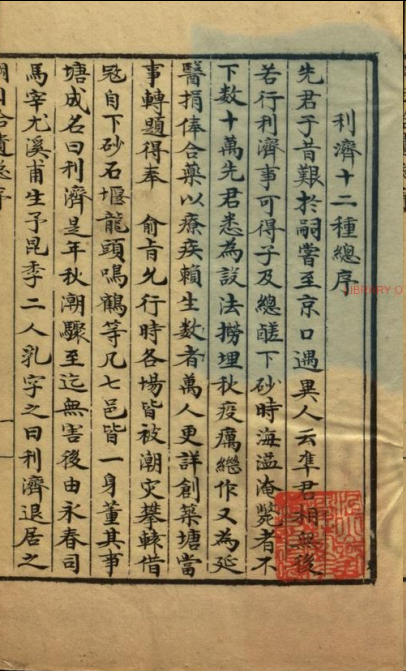 利濟十二種總序
先君子昔艱於嗣嘗至京口遇異人云準君相無後
若行利濟事可得子及總醝下砂時海溢淹斃者不
下数十萬先君悉為設法撈埋秋疫癘繼作又為延
醫捐俸合藥以療疾賴生数者萬人更詳創築塘當
事轉題得奉　俞旨允行時各場皆被潮灾攀轅借
冦自下砂石堰龍頭鳴鶴等凡七邑皆一身董其事
塘成名曰利濟是年秋潮驟至迄無害後由永春司
馬宰尤溪甫生予昆季二人乳字之曰利濟退居之
IBRARY O